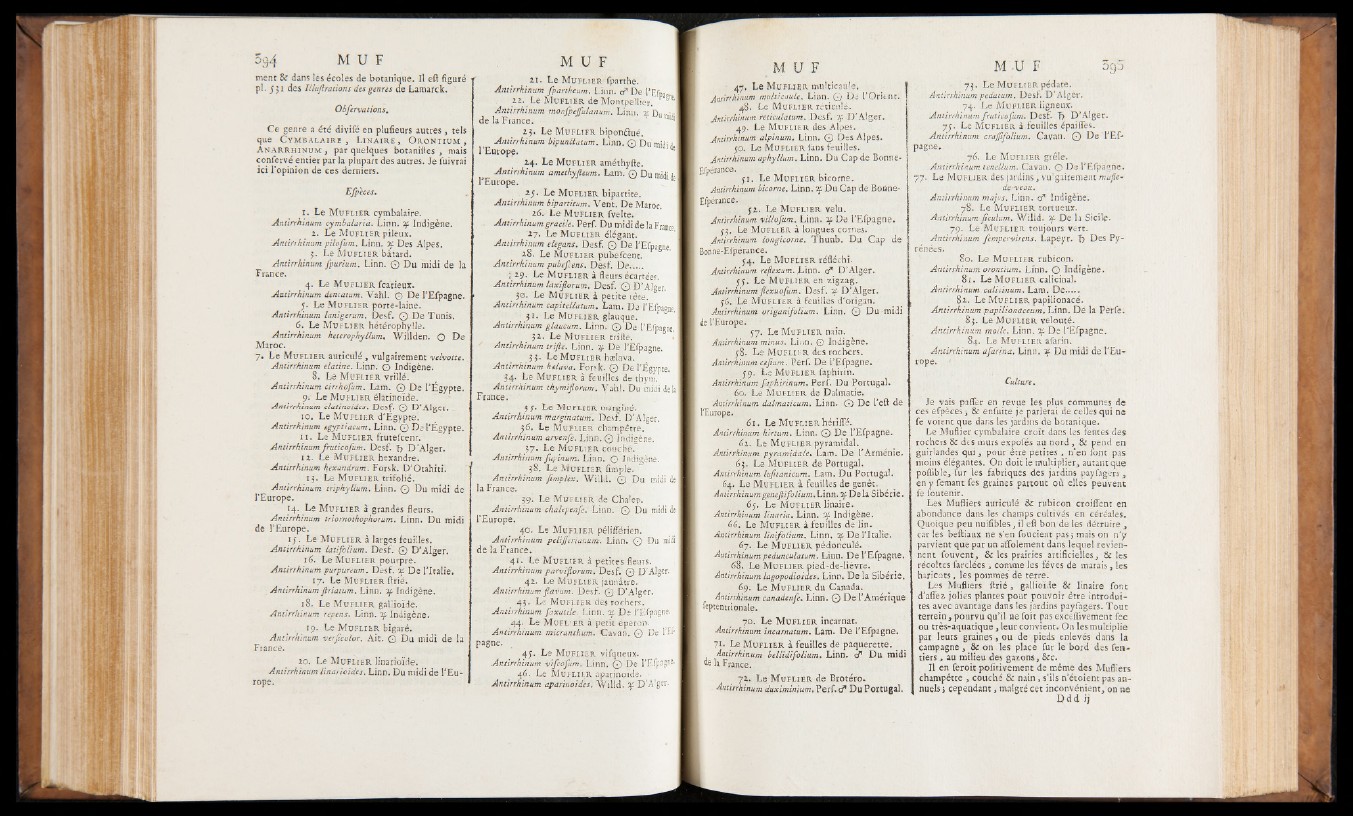 394 M U F
ment & dans les écoles de botanique. Il eſt figuré
pl. 531 des Illuſtrations des genres de Lamarck.
Obſervations.
Ce genre a été diviſé en pluſieurs autres, tels
que CYMBALAIRE, LINAIRE, ORONTIUM,
ANARRHINUM, par quelques botaniſtes, mais
conſervé entier par la plupart des autres. Je ſuivrai
ici l'opinion de ces derniers.
Eſpèces.
1. Le MUFLIER cymbalaire.
Antirrhinum cymbalaria. Linn. ♃ Indigène.
2. Le MUFLIER pileux.
Antirrhinum piloſum. Linn. ♃ Des Alpes.
3. Le MUFLIER bâtard.
Antirrhinum ſpurium. Linn. ☉ Du midi de la
France.
4. Le MUFLIER ſcarieux.
Antirrhinum dentatum. Vahl. ☉ De l'Eſpagne.
5. Le MUFLIER porte-laine.
Antirrhinum lanigerum. Desf. ☉ De Tunis.
6. Le MUFLIER hétérophylle.
Antirrhinum heterophyllum. Willden. ☉ De
Maroc.
7. Le MUFLIER auriculé, vulgairement velvotte.
Antirrhinum elatine. Linn. ☉ Indigène.
8. Le MUFLIER vrillé.
Antirrhinum cirrhoſum. Lam. ☉ De l'Égypte.
9. Le MUFLIER élatinoïde.
Antirrhinum elatinoides. Desf. ☉ D'Alger.
10. Le MUFLIER d'Égypte.
Antirrhinum ægyptiacum. Linn. ☉ De l'Égypte.
11. Le MUFLIER fruteſcent.
Antirrhinum fruticoſum. Desf. ♄ D'Alger.
12. Le MUFLIER hexandre.
Antirrhinum hexandrum. Forsk. D'Otahiti.
13. Le MUFLIER trifolié.
Antirrhinum triphyllum. Linn. ☉ Du midi de
l'Europe.
14. Le MUFLIER à grandes fleurs.
Antirrhinum triornithophorum. Linn. Du midi
de l'Europe.
15. Le MUFLIER à larges feuilles.
Antirrhinum latifolium. Desf. ☉ D'Alger.
16. Le MUFLIER pourpre.
Antirrhinum purpureum. Desf. ♃ De l'Italie.
17. Le MUFLIER ſtrié.
Antirrhinum ſtriatum. Linn. ♃ Indigène.
18. Le MUFLIER gallioïde.
Antirrhinum repens. Linn. ♃ Indigène.
19. Le MUFLIER bigaré.
Antirrhinum verſicolor. Ait. ☉ Du midi de la
France.
20. Le MUFLIER linarioïde.
Antirrhinum linarioides. Linn. Du midi de l'Eu-
rope.
M U F
21. Le MUFLIER ſparthe.
Antirrhinum ſpartheum. Linn. ♂ De l'Eſpagne.
22. Le MUFLIER de Montpellier.
Antirrhinum monſpeſſulanum. Linn. ♃ Du midi
de la France.
23. Le MUFLIER biponctué.
Antirrhinum bipunctatum. Linn. ☉ Du midi de
l'Europe.
24. Le MUFLIER améthyſte.
Antirrhinum amethyſteum. Lam. ☉ Du midi de
l'Europe.
25. Le MUFLIER bipartite.
Antirrhinum bipartitum. Vent. De Maroc.
26. Le MUFLIER ſvelte.
Antirrhinum gracile. Perſ. Du midi de la France.
27. Le MUFLIER élégant.
Antirrhinum elegans. Desf. ☉ De l'Eſpagne.
28. Le MUFLIER pubeſcent.
Antirrhinum pubeſcens. Desf. De.....
29. Le MUFLIER à fleurs écartées.
Antirrhinum laxiflorum. Desf. ☉ D'Alger.
30. Le MUFLIER à petite tête.
Antirrhinum capitellatum. Lam. De l'Eſpagne.
31. Le MUFLIER glauque.
Antirrhinum glaucum. Linn. ☉ De l'Eſpagne.
32. Le MUFLIER triſte.
Antirrhinum triſte. Linn. ♃ De l'Eſpagne.
33. Le MUFLIER hælava.
Antirrhinum hælava. Forsk. ☉ De l'Égypte.
34. Le MUFLIER à feuilles de thym.
Antirrhinum thymiflorum. Vahl. Du midi de la
France.
35. Le MUFLIER marginé.
Antirrhinum marginatum. Desf. D'Alger.
36. Le MUFLIER champêtre.
Antirrhinum arvenſe. Linn. ☉ Indigène.
37. Le MUFLIER couché.
Antirrhinum ſupinum. Linn. ☉ Indigène.
38. Le MUFLIER ſimple.
Antirrhinum ſimplex. Willd. ☉ Du midi de
la France.
39. Le MUFLIER de Chalep.
Antirrhinum chalepenſe. Linn. ☉ Du midi de
l'Europe.
40. Le MUFLIER péliſſérien.
Antirrhinum peliſſerianum. Linn. ☉ Du midi
de la France.
41. Le MUFLIER à petites fleurs.
Antirrhinum parviflorum. Desf. ☉ D'Alger.
42. Le MUFLIER jaunâtre.
Antirrhinum flavum. Desf. ☉ D'Alger.
43. Le MUFLIER des rochers.
Antirrhinum ſaxatile. Linn. ♃ De l'Eſpagne.
44. Le MUFLIER à petit éperon.
Antirrhinum micranthum. Cavan. ☉ De l'Eſ-
pagne.
45. Le MUFLIER viſqueux.
Antirrhinum viſcoſum. Linn. ☉ De l'Eſpagne.
46. Le MUFLIER aparinoïde.
Antirrhinum aparinoides. Willd. ♃ D'Alger.
M U F
47. Le MUFLIER multicaule.
Antirrhinum multicaule. Linn. ☉ De l'Orient.
48. Le MUFLIER réticulé.
Antirrhinum reticulatum. Desf. ♃ D'Alger.
49. Le MUFLIER des Alpes.
Antirrhinum alpinum. Linn. ☉ Des Alpes.
50. Le MUFLIER ſans feuilles.
Antirrhinum aphyllum. Linn. Du Cap de Bonne-
Eſpérance.
51. Le MUFLIER bicorne.
Antirrhinum bicorne. Linn. ♃ Du Cap de Bonne-
Eſpérance.
52. Le MUFLIER velu.
Antirrhinum villoſum. Linn. ♃ De l'Eſpagne.
53. Le MUFLIER à longues cornes.
Antirrhinum longicorne. Thunb. Du Cap de
Bonne-Eſpérance.
54. Le MUFLIER réfléchi.
Antirrhinum reflexum. Linn. ♂ D'Alger.
55. Le MUFLIER en zigzag.
Antirrhinum flexuoſum. Desf. ♃ D'Alger.
56. Le MUFLIER à feuilles d'origan.
Antirrhinum origanifolium. Linn. ☉ Du midi
de l'Europe.
57. Le MUFLIER nain.
Antirrhinum minus. Linn. ☉ Indigène.
58. Le MUFLIER des rochers.
Antirrhinum cæſium. Perſ. De l'Eſpagne.
59. Le MUFLIER ſaphirin.
Antirrhinum ſaphirinum. Perſ. Du Portugal.
60. Le MUFLIER de Dalmatie.
Antirrhinum dalmaticum. Linn. ☉ De l'eſt de
l'Europe.
61. Le MUFLIER hériſſé.
Antirrhinum hirtum. Linn. ☉ De l'Eſpagne.
62. Le MUFLIER pyramidal.
Antirrhinum pyramidale. Lam. De l'Arménie.
63. Le MUFLIER de Portugal.
Antirrhinum luſitanicum. Lam. Du Portugal.
64. Le MUFLIER à feuilles de genêt.
Antirrhinum geneſtifolium. Linn. ♃ De la Sibérie.
65. Le MUFLIER linaire.
Antirrhinum linaria. Linn. ♃ Indigène.
66. Le MUFLIER à feuilles de lin.
Antirrhinum linifolium. Linn. ♃ De l'Italie.
67. Le MUFLIER pédonculé.
Antirrhinum pedunculatum. Linn. De l'Eſpagne.
68. Le MUFLIER pied-de-lievre.
Antirrhinum lagopodioides. Linn. De la Sibérie.
69. Le MUFLIER du Canada.
Antirrhinum canadenſe. Linn. ☉ De l'Amérique
ſeptentrionale.
70. Le MUFLIER incarnat.
Antirrhinum incarnatum. Lam. De l'Eſpagne.
71. Le MUFLIER à feuilles de paquerette.
Antirrhinum bellidifolium. Linn. ♂ Du midi
de la France.
72. Le MUFLIER de Brotéro.
Antirrhinum duximinium. Perſ. ♂ Du Portugal.
M U F 395
73. Le MUFLIER pédate.
Antirrhinum pedatum. Desf. D'Alger.
74. Le MUFLIER ligneux.
Antirrhinum fruticoſum. Desf. ♄ D'Alger.
75. Le MUFLIER à feuilles épaiſſes.
Antirrhinum craſſifolium. Cavan. ☉ De l'Eſ-
pagne.
76. Le MUFLIER grêle.
Antirrhinum tenellum. Cavan. ☉ De l'Eſpagne.
77. Le MUFLIER des jardins, vulgairement mufle-
de-veau.
Antirrhinum majus. Linn. ♂ Indigène.
78. Le MUFLIER tortueux.
Antirrhinum ſiculum. Willd. ♃ De la Sicile.
79. Le MUFLIER toujours vert.
Antirrhinum ſempervirens. Lapeyr. ♄ Des Py-
rénées.
80. Le MUFLIER rubicon.
Antirrhinum orontium. Linn. ☉ Indigène.
81. Le MUFLIER calicinal.
Antirrhinum calicinum. Lam. De.....
82. Le MUFLIER papilionacé.
Antirrhinum papilionaceum. Linn. De la Perſe.
83. Le MUFLIER velouté.
Antirrhinum molle. Linn. ♃ De l'Eſpagne.
84. Le MUFLIER aſarin.
Antirrhinum aſarina. Linn. ♃ Du midi de l'Eu-
rope.
Culture.
Je vais paſſer en revue les plus communes de
ces eſpèces, & enſuite je parlerai de celles qui ne
ſe voient que dans les jardins de botanique.
Le Muflier cymbalaire croît dans les fentes des
rochers & des murs expoſés au nord, & pend en
guirlandes qui, pour être petites, n'en ſont pas
moins élégantes. On doit le multiplier, autant que
poſſible, ſur les fabriques des jardins payſagers,
en y ſemant ſes graines partout où elles peuvent
ſe ſoutenir.
Les Mufliers auriculé & rubicon croiſſent en
abondance dans les champs cultivés en céréales.
Quoique peu nuiſibles, il eſt bon de les détruire,
car les beſtiaux ne s'en ſoucient pas; mais on n'y
parvient que par un aſſolement dans lequel revien-
nent ſouvent, & les prairies artificielles, & les
récoltes ſarclées, comme les féves de marais, les
haricots, les pommes de terre.
Les Mufliers ſtrié, gallioïde & linaire ſont
d'aſſez jolies plantes pour pouvoir être introdui-
tes avec avantage dans les jardins payſagers. Tout
terrein, pourvu qu'il ne ſoit pas exceſſivement ſec
ou très-aquatique, leur convient. On les multiplie
par leurs graines, ou de pieds enlevés dans la
campagne, & on les place ſur le bord des ſen-
tiers, au milieu des gazons, &c.
Il en ſeroit poſitivement de même des Mufliers
champêtre, couché & nain, s'ils n'étoient pas an-
nuels; cependant, malgré cet inconvénient, on ne
Ddd ij